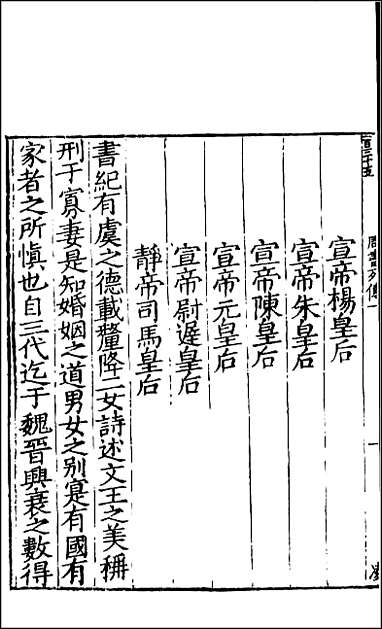 周書列傳一
宣帝楊皇后
宣帝朱皇后
宣帝陳皇后
宣帝元皇后
宣帝尉遲皇后
靜帝司馬皇后
書紀有虞之德載釐降二女詩述文王之美稱
刑于寡妻是知婚姻之道男女之别寔有國有
家者之所愼也自三代迄于魏晉興衰之數得